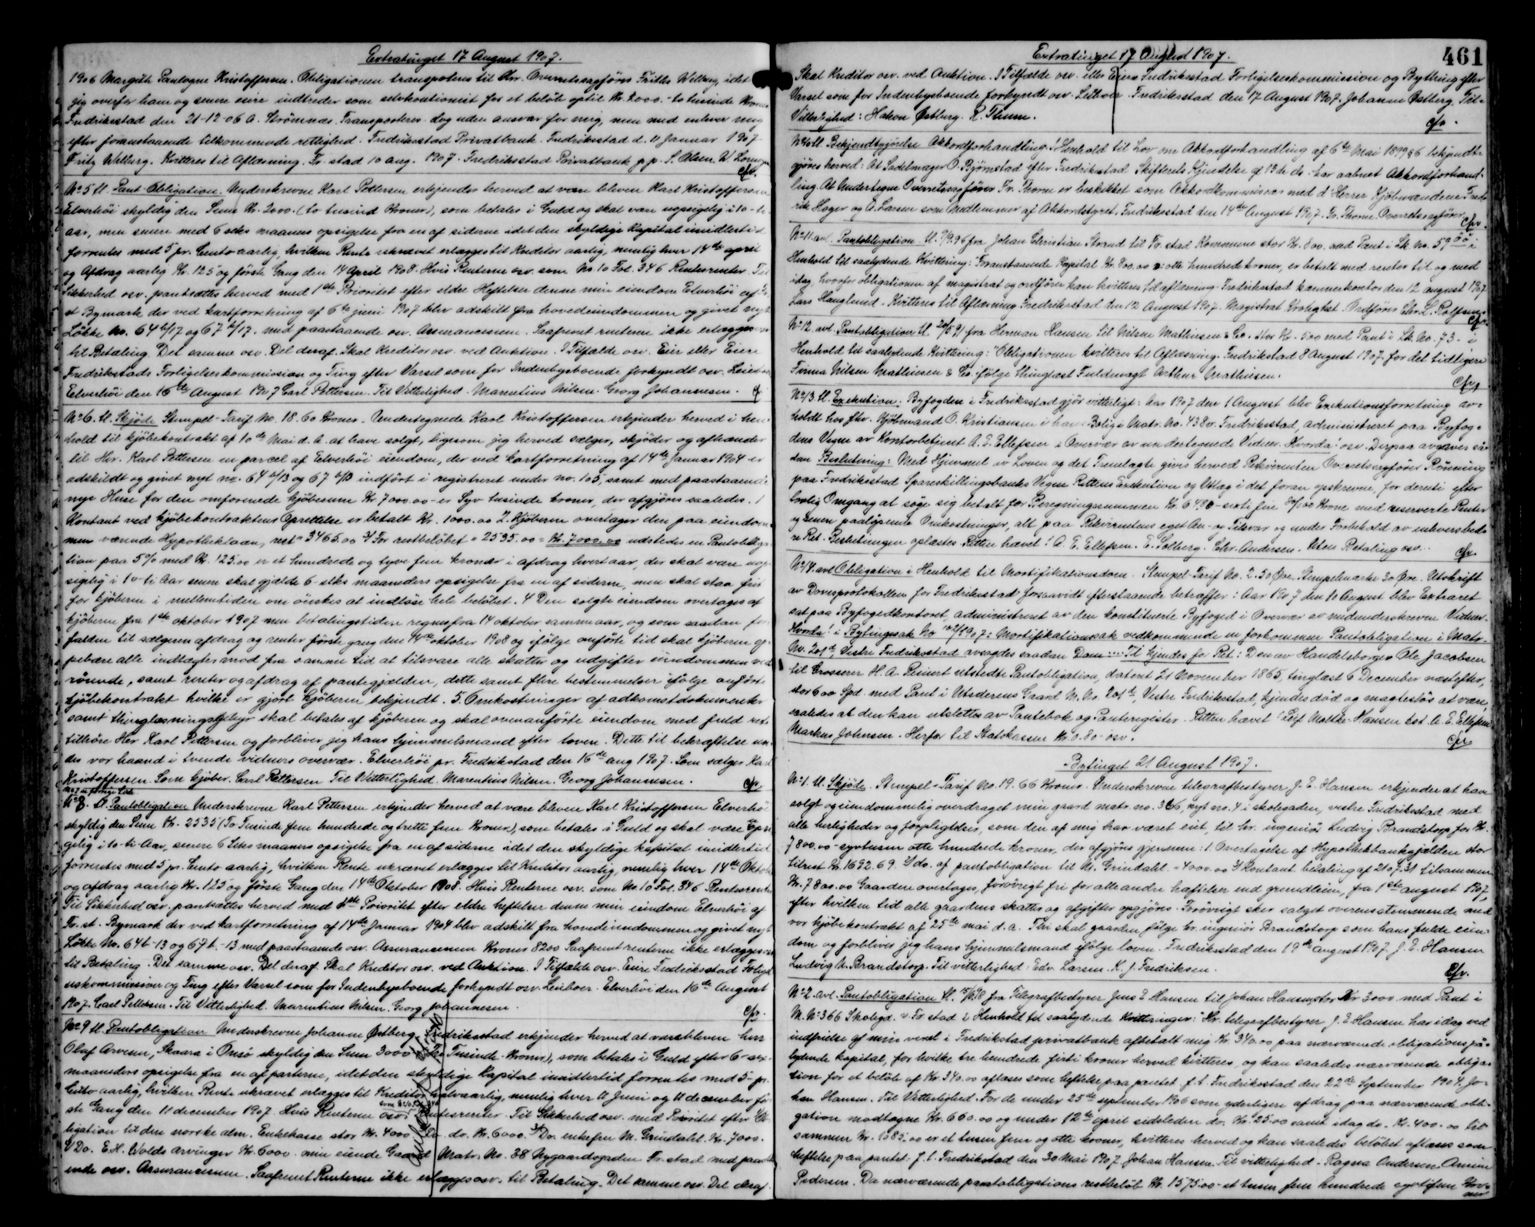 Extratinget 17 August 1907.
1906 Margith Paulogne Kristoffersen. Obligationen transporteres til Hr. Overretssagfører Fritz Welberg idet
jeg overfor ham og senere eiere indtræder som selvkautionist for et beløb optil Kr. 2000 - to tusinde Kroner
Fredriksstad den 21-12-06 A. Strømnæs. Transporteres dog uden ansvar for mig, men med enhver mig
efter foranstaaende tilkommende rettighed. Fredriksstad Privatbank. Fredriksstad d. 11 Januar 1907
Fritz Welberg. Kvitteres til Aflæsning. Fr.stad 10 aug. 1907. Fredriksstad Privatbank p.p. S. Olsen
No 5 U. Pant Obligation. Underskrevne Karl Pettersen erkjender herved at være bleven Karl Kristoffersen
Elverhöi skyldig den Sum Kr. 2000. (to tusind Kroner), som betales i Guld og skal være uopsigelig i 10-ti
aar, men senere med 6 seks maaneders opsigelse fra en af siderne idet den skyldige kapital imidlertid
forrentes med 5 pr. Cento aarlig, hvilken Rente ukrævet erlægges til Kreditor aarlig, nemlig hver 14de april
og Afdrag aarlig Kr. 125 og første Gang den 14 April 1908. Hvis Renterne osv. som No 10 Fol. 346 Rentesrenter Til
Sikkerhed osv. pantsættes herved med 1ste Prioritet efter eldre Heftelser denne min eiendom Elverhöi af Fr.
st. Bymark der ved kartforretning af 6te juni 1907 blev adskilt fra hovedeiendommen og givet nyt
Løkke No. 64 b/17 og 67 b/17. med paastaaende osv. Assurancesum. Saafremt renterne ikke erlægges osv
til Betaling. Det samme osv. Del deraf. Skal Kreditor osv. ved Auktion. I Tilfælde osv. Eier eller Eiere
Fredrikstads Forligelseskommission og Ting efter Varsel som for Indenbysboende forkyndt osv.
Elverhöi den 16de August 1907 Carl Pettersen. Til Vitterlighed. Marentius Nilsen. Georg Johannesen.
No 6. U. Skjöde. Stempel-Tarif No. 18. 60 Kroner. Undertegnede Karl Kristoffersen erkjender herved i hen-
hold til kjöbekontrakt af 10de Mai d. A. at have solgt, ligesom jeg herved sælger, skjöder og afhænder
til Hr. Karl Pettersen en parcel af Elverhöi eiendom, der ved kartforretning af 14de Januar 1904 er
adskildt og givet nyt no. 64 b/13 og 67 b/13 indført i registeret under no. 103, samt med paastaaende
nye Huse for den omforenede kjöbesum Kr. 7000.00 - Syv tusinde kroner, der afgjøres saaledes. 1
Kontant ved kjöbekontraktens Oprettelse er betalt Kr. 1000.00 2. Kjöberen overtager den paa eiendom-
men værende Hypotheklaan, rest " 3465.00 3 For restbelöbet " 2535.00 = Kr. 7000.00 udstedes en Pantobliga-
tion paa 5% med Kr. 125.00 er et hundrede og tyve fem kroner i afdrag hvert aar, der skal være uop-
sigelig i 10-ti Aar men skal gjælde 6 seks maaneders opsigelse fra en af siderne, men skal staa frit
for kjöberen i mellemtiden om önskes at indlöse hele belöbet. 4 Den solgte eiendom overtages af
kjöberen fra 1ste oktober 1907 men betalingstiden regnes fra 14 oktober sammeaar, og som saadan for-
falden til sælgeren afdrag og renter første gang den 14de oktober 1908 og ifölge anförte tid skal kjöberen op-
pebære alle indtægter mod fra samme tid at tilsvare alle skatter og udgifter eiendommen ved-
rörende, samt renter og afdrag af pantegjælden, dette samt flere bestemmelser ifölge anförte
kjöbekontrakt hvilke er gjört kjöberen bekjendt. 5. Omkostninger af adkomstdokumenter
samt thinglæsningsgebyr skal betales af kjöberen og skal ovenanförte eiendom med fuld ret
tilhöre Hr. Karl Pettersen og forbliver jeg hans hjemmelsmand efter loven. Dette til bekræftelse un-
der vor haand i tvende vidners overvær. Elverhöi pr. Fredrikstad den 16de aug 1907. Som sælger Karl
Kristoffersen. Som kjöber. Carl Pettersen Til Vitterlighed. Marentius Nilsen. Georg Johannesen.
No 8. U. Pantobligation Underskrevne Karl Pettersen erkjender herved at være bleven Karl Kristoffersen Elverhöi
skyldig den Sum Kr. 2535 (To Tusinde fem hundrede og tretti fem Kroner), som betales i Guld og skal være Uopsi-
gelig i 10-ti Aar, senere 6 Seks maaneders opsigelse fra en af siderne idet den skyldige kapital imidlertid
forrentes med 5 pr. Cento aarlig, hvilken Rente ukrævet erlægges til Kreditor aarlig, nemlig hver 14de Oktober
og afdrag aarlig Kr. 125 og første Gang den 14de Oktober 1908. Hvis Renterne osv. som No 10 Fol. 346 Rentesrenter
Til Sikkerhed osv. pantsættes herved med 2den Prioritet efter eldre heftelser denne min eiendom Elverhöi af
Fr. st. Bymark der ved kartforretning af 14de Januar 1904 blev adskilt fra hovedeiendommen og givet nyt
Løkke No. 64b-13 og 67b-13 med paastaaende osv. Assurancesum Kroner 8200 Saafremt renterne ikke erlægges osv
til Betaling. Det samme osv. Del deraf. Skal Kreditor osv. ved Auktion. I Tilfælde osv. Eiere Fredriksstad Forligel-
seskommission og Ting efter Varsel som for Indenbysboende forkyndt osv. Elverhöi den 16de August
1907. Carl Pettersen. Til Vitterlighed. Marentius Nilsen. Georg Johannesen.
No 9 U. Pantobligation Underskrevne Johanne Østberg, Fredrikstad erkjender herved at være bleven herr
Olaf Arvesen, Skaara i Onsø skyldig den Sum 3000 (Tre Tusinde Kroner), som betales i Guld efter 6-sex
maaneders opsigelse fra en af parterne, idet den skyldige kapital imidlertid forrentes med 5- pr.
Cento aarlig, hvilken Rente ukrævet erlægges til Kreditor halvaarlig, nemlig hver 11 Juni og 11 december før-
ste Gang den 11 december 1907. Hvis Renterne osv. Rentesrenter. Til Sikkerhed osv. med Prioritet efter Ob-
ligation til den norske alm. Enkekasse stor Kr. 4000 2 do. Kr. 6000. 3 Do. enkefru M. Gründahl. Kr. 7000.
4 Do. E. H. Wolds arvinger Kr. 6000. min eiende Gaard Matr. No. 38 Nygaardsgaden Fr. stad med paasta-
ende osv. Assurancesum. Saafremt Renterne ikke erlægges osv. til Betaling. Det samme osv. Del deraf
Extratinget 17 August 1907.
461
Skal Kreditor osv. ved Auktion. I Tilfælde osv. eller Eiere Fredrikstad Forligelseskommission og Bything efter
Varsel som for Indenbysboende forkyndt osv. Fredriksstad den 17 August 1907. Johanne Østberg. Til
Vitterlighed: Hakon Østberg. R. Thune.
No 10 U. Bekjendtgjörelse Akkordforhandling. I Henhold til Lov om Akkordforhandling af 6te Mai 1899 § 6 bekjendt-
gjöres herved: At Sadelmager O. Bjørnstad efter Fredrikstad Skifterets Kjendelse af 13de ds. har aabnet Akkordforhand-
ling. At Undertegnede Overretssagfører Fr. Thorne er beskikket som Akkordkommissær med d'Herrer Kjöbmændene Fred-
rik Høger og A. Larsen som Medlemmer af Akkordstyret. Fredriksstad den 14de August 1907. Fr. Thorne Overretssagfører.
No 11 avl. Pantobligation U. 7/2 96 fra Johan Christian Strand til Fr.stad Kommune stor Kr. 800. mod Pant i Sk. No. 59 i
Henhold til saalydende Kvittering: Foranstaaende Kapital Kr. 800.00 er: otte hundrede kroner, er betalt med renter til og med
idag, hvorfor obligationen af magistrat og ordfører kan kvitteres til aflæsning. Fredrikstad kæmnerkontor den 12 august 1907
Lars Hauglund. Kvitteres til Aflæsning Fredrikstad den 12 August 1907. Magistrat Ordfører Chr. L. Rolfsen.
No 12 avl. Pantobligation U. 91 fra Herman Hansen til Nilsen Mathiesen & Co. stor Kr. 500 med Pant i Sk. No. 73. i
Henhold til saalydende Kvittering: Obligationen kvitteres til Aflæsning. Fredrikstad 9 August 1907. for det tidligere
Firma Nilsen Mathiesen & Co. ifølge thinglæst Fuldmagt Arthur Mathiesen.
No 13 U. Execution. Byfogden i Fredrikstad gjør vitterligt: Aar 1907 den 1 August blev Executionsforretning av-
holdt hos fhv. Kjöbmand O. Kristiansen i hans Bolig Matr. No. 438 v. Fredrikstad, administreret paa Byfog-
dens Vegne av Kontorbetjent A. E. Ellefsen i Overvær av undertegnede Vidner. Hvorda! osv. Derpaa avgaves sa-
dan Beslutning: Med Hjemmel i Loven og det Fremlagte gives herved Rekvirenten Overretssagfører Rönning
paa Fredrikstad Sparesillingsbanks Vegne Rettens Exekution og Utlæg i det foran opskrevne, for derudi efter
lovlig Omgang at søge sig betalt for Regningssummen Kr. 6480 - seks fire Krone med reserverte Renter
og senere paaløpende Omkostninger, alt paa Rekvirentens eget An- og Tilsvar og under Forbehold av enhvers bed-
re Ret. Beslutningen oplæstes Retten hævet! A. E. Ellefsen. E. Solberg. Chr. Andersen. Uten Betaling osv.
No 14 avl. Obligation i Henhold til Mortifikationsdom. Stempel Tarif No. 2. 50 Øre. Stempelmerke 30 Øre. Utskrift
av Domsprotokollen for Fredrikstad forsaavidt efterstaaende betræffer: Aar 1907 den 10 August blev Extraret
sat paa Byfogedkontoret, administreret av den konstituerte Byfoged i Overvær av undertegnede Vidner.
Hvorda! i Bytingssak No 1907: Mortifikationssak vedkommende en forkommen Pantobligation i Matr.
No. 201b, Vestre Fredrikstad avsagdes saadan Dom: ---- Ti kjendes for Ret: Den av Handelsborger Ole Jacobsen
til Grosserer H. A. Reinert utstedte Pantobligation, dateret 21 November 1865, tinglæst 6 December næstefter,
stor 600 Spd. med Pant i Utstederens Gaard M. No. 201b, Vestre Fredrikstad, kjendes död og magtesløs at være,
saaledes at den kan utslettes av Pantebok og Panteregister. Retten hævet. Hansen kst. A. E. Ellefsen
Markus Johnsen. Herfor til Statskassen Kr. 0.80. osv.
Bytinget 21 August 1907.
No 1. U. Skjöde. Stempel-Tarif No. 19. 66 Kroner. Underskrevne telegrafbestyrer J. E. Hansen erkjender at have
solgt og eiendommelig overdraget min gaard matr. no. 366, nyt no. 4 i skolegaden, vestre Fredriksstad med
alle herligheder og forpligtelser, som den af mig har været eiet, til hr. ingeniör Ludvig Brandstorp for Kr.
7800.00 - syvtusen otte hundrede kroner, der afgjøres gjennem: 1. Overtagelse af Hypothekbankgjælden stor
tilrest Kr. 1692.69. 2 do. af pantobligation til M. Gründahl " 4000.00 3 Kontant betaling af 2107.31 tilsammen
Kr. 7800.00 Gaarden overtages, forøvrigt fri for alle andre hæftelser end grundleien, fra 1ste august 1907,
efter hvilken tid alle gaardens skatter og afgifter opgjøres. Iøvrigt sker salget overensstemmende med
vor kjöbekontrakt af 25de mai d.a. Thi skal gaarden følge hr. ingeniør Brandstorp som hans fulde eien-
dom og forblives jeg hans hjemmelsmand ifölge loven. Fredrikstad den 19de august 1907. J. E. Hansen
Ludvig M. Brandstorp. Til vitterlighed: Edv. Larsen. K. J. Fredriksen.
No 2. avl. Pantobligation U. fra Telegrafbestyrer Jens E Hansen til Johan Hansen stor Kr 3000 med Pant i
M. No 366 Skolegd. v. Fr.stad i Henhold til saalydende Kvitteringer: "Hr. telegrafbestyrer J. E Hansen har idag ved
indfrielse af min vexel i Fredrikstad privatbank afbetalt mig Kr. 340.00 paa nærværende obligations på-
lydende Kapital, for hvilke tre hundrede firti kroner herved kvitteres, og kan saaledes nærværende obliga-
tion for et beløb af Kr. 340.00 aflæses som heftelse paa pantet. f. t. Fredrikstad den 22de September 1904. Jo-
han Hansen. Til Vitterlighed. For de under 25de september 1906 som yderligere afdrag paa nærværende obli-
gation modtagne Kr. 660.00 og under 12te april sidstleden do. Kr. 25.00 samt idag do. Kr. 400.00 til-
sammen Kr. 1085.00 er et tusen fem og otte kroner, kvitteres herved og kan saaledes beløbet aflæses som
heftelse paa pantet. f. t. Fredrikstad den 30 Mai 1907. Johan Hansen. Til vitterlighed. Ragna Andersen. Annine
Pedersen. Da nærværende pantobligations restbeløb Kr. 1575.00 et tusen fem hundrede sytifem kro-
ner